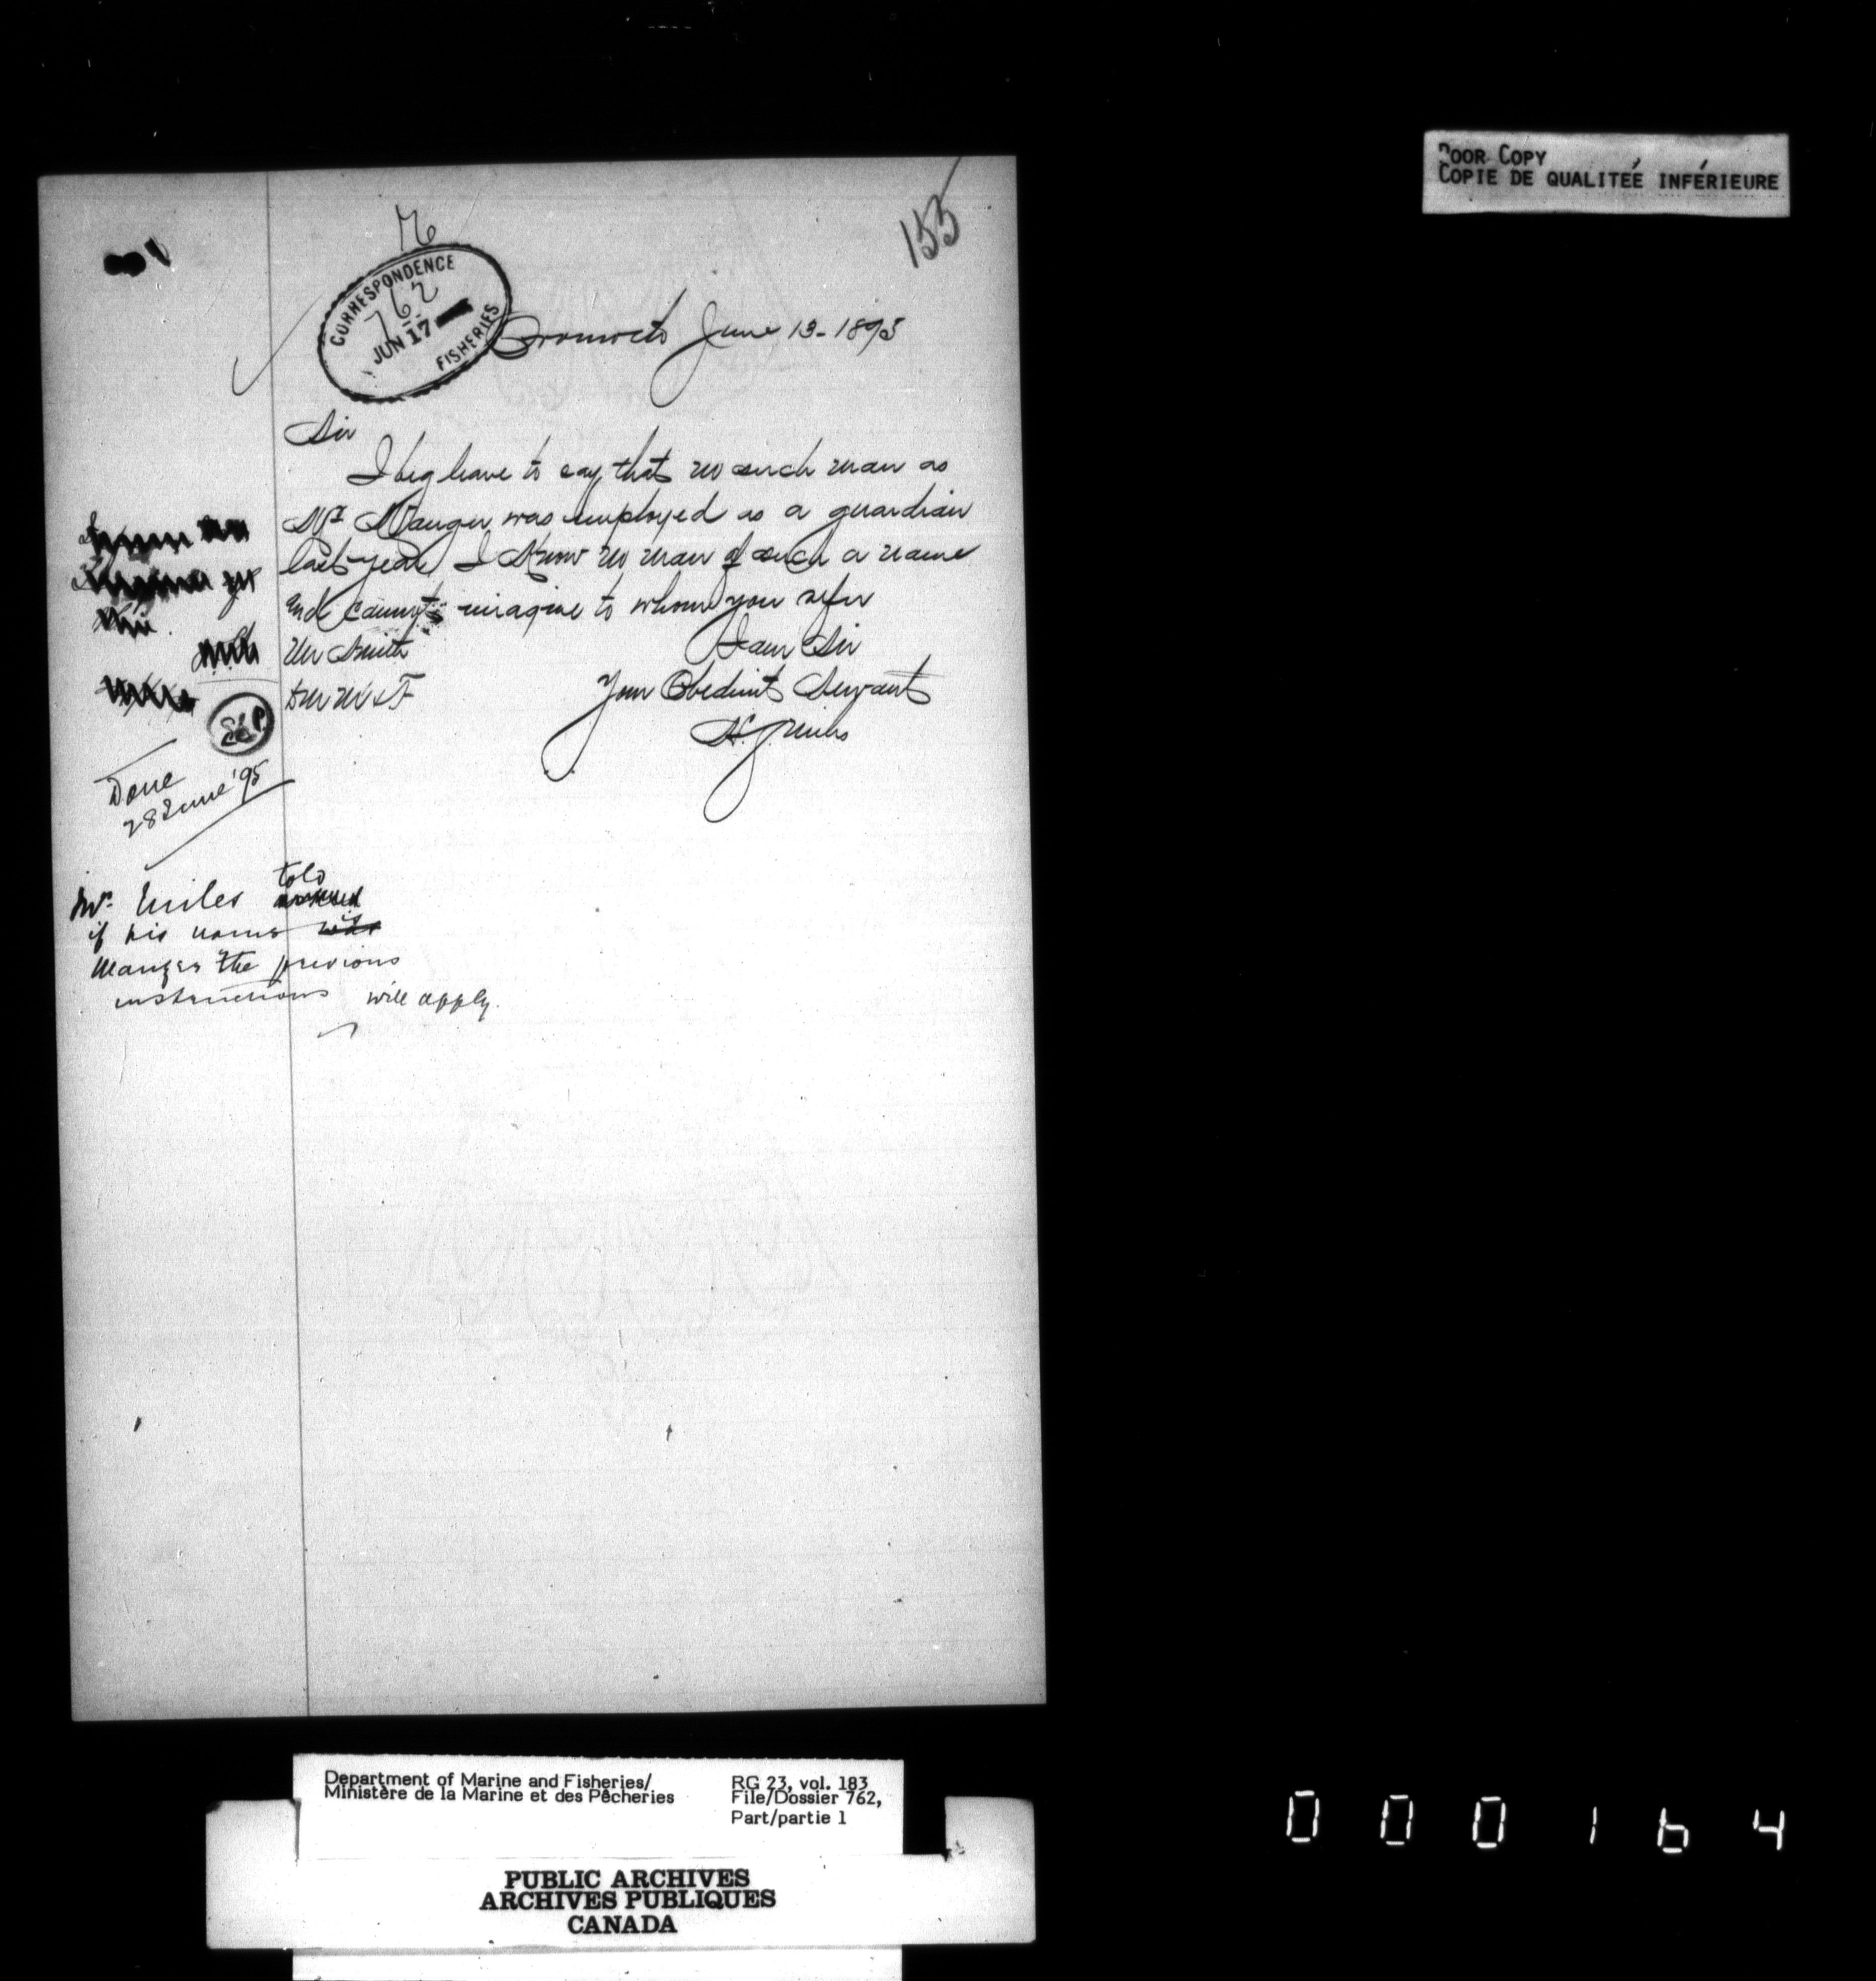 POOR COPY
COPIE DE QUALITEÉ INFÉRIEURE
155
CORRESPONDENCE
762
JUN 17
FISHERIES
Oromocto June 13-1895
Sir
I beg leave to say that no such man as
Mr Mauger was employed as a guardian
last year, I know no man of such a name
and cannot imagine to whom you refer
I am Sir
Wm Smith
Your Obedient Servant
D M M & F
H. S. Miles
Done
28 June '95
Mr. Miles told
if his name was
Mauger the previous
instructions will apply.
Department of Marine and Fisheries/
Ministère de la Marine et des Pêcheries
RG 23, vol. 183
File/Dossier 762,
Part/partie 1
PUBLIC ARCHIVES
ARCHIVES PUBLIQUES
CANADA
000164